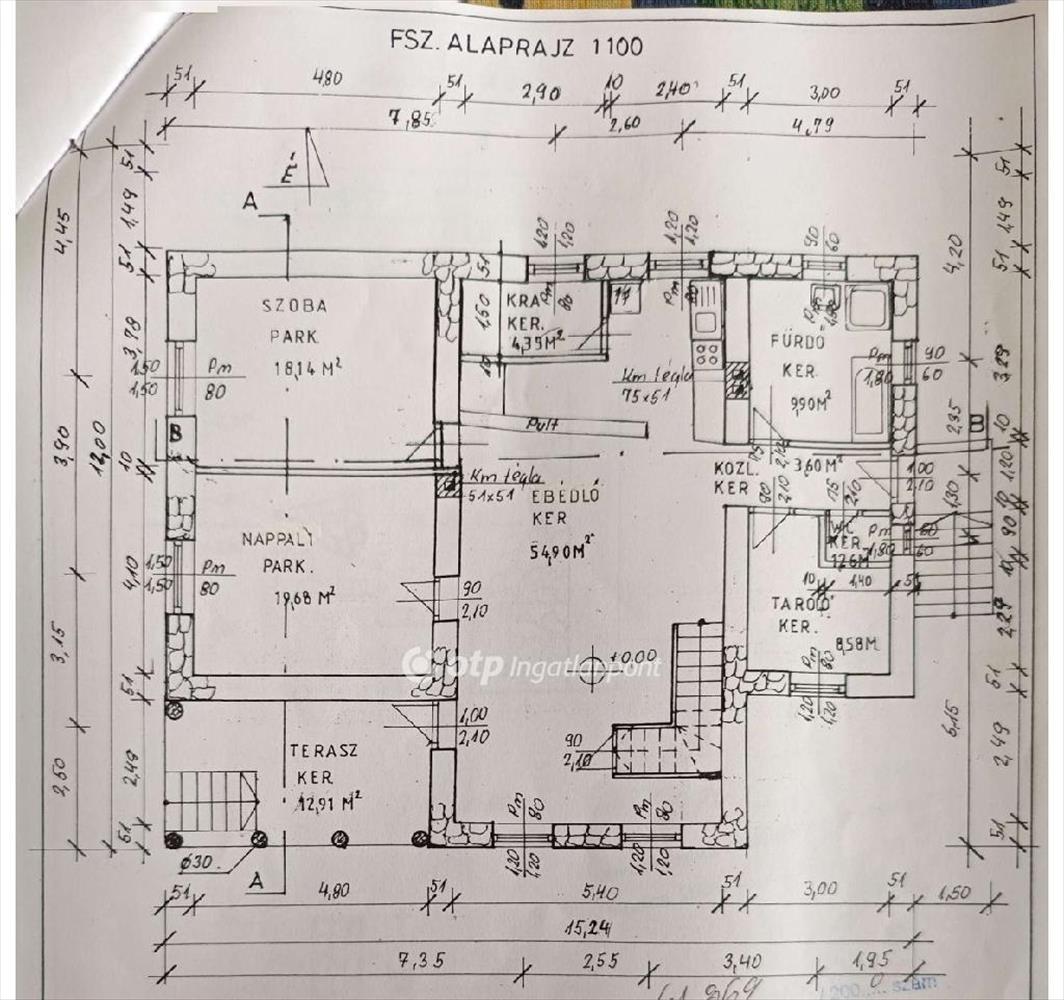 FSZ. ALAPRAJZ 1100
51 4,80 51 2,90 10 2,40 51 3,00 51
7,85 2,60 4,79
É
A
51 1,49 51 3,78 10 4,10 51 2,49 51
12,00
4,45 3,90 3,15 2,50
1,20 1,20
1,20 1,20
90 60
SZOBA
PARK
18,14 M²
KRA
KER.
4,39 M²
51
1,50
10
Pm 80
Pm 80
FÜRDŐ
KER.
9,90 M²
1,50 1,50
Pm 80
Km tégla
75x51
Pm 1,80
90 60
Pult
B
B
Km tégla
51x51
EBÉDLŐ
KER
54,90 M²
KÖZL.
KER
3,60 M²
75 2,10
90 2,10
75 2,10
1,00 2,10
NAPPALI
PARK.
19,68 M²
1,50 1,50
Pm 80
WC
KER.
1,26 M²
Pm 1,80
60 60
90 2,10
10 1,40 51
TÁROLÓ
KER.
8,58 M
±0,00
otp Ingatlanpont
1,00 2,10
Pm 80
1,20 1,20
TERASZ
KER
12,91 M²
90 2,10
Pm 80
Pm 80
1,20 1,20
1,20 1,20
Ø30
A
51 1,49 51 3,29 10 1,20 10 90 10 2,29 51 2,49 51
4,20 2,35 1,30 6,15
51 4,80 51 5,40 51 3,00 51 1,50
15,24
7,35 2,55 3,40 1,95
szám